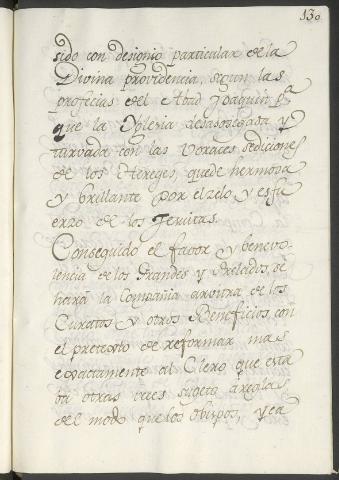 130
sido con designio particular de la
Divina providencia, segun las
profecias del Abad Joaquin pa
que la Yglesia desasosegada y
turvada con las voraces sediciones
de los Hereges, quede hermosa
y brillante por el zelo y esfu
erzo de los Jesuitas.
Conseguido el favor y benevo-
lencia de los Grandes y Prelados, se
hará la Compañia arvitra de los
Curatos y otros Beneficios, con
el pretexto de reformar mas
exactamente al Clero que esta
ba otras veces sugeto á reglas
del modo que los obispos, y ea